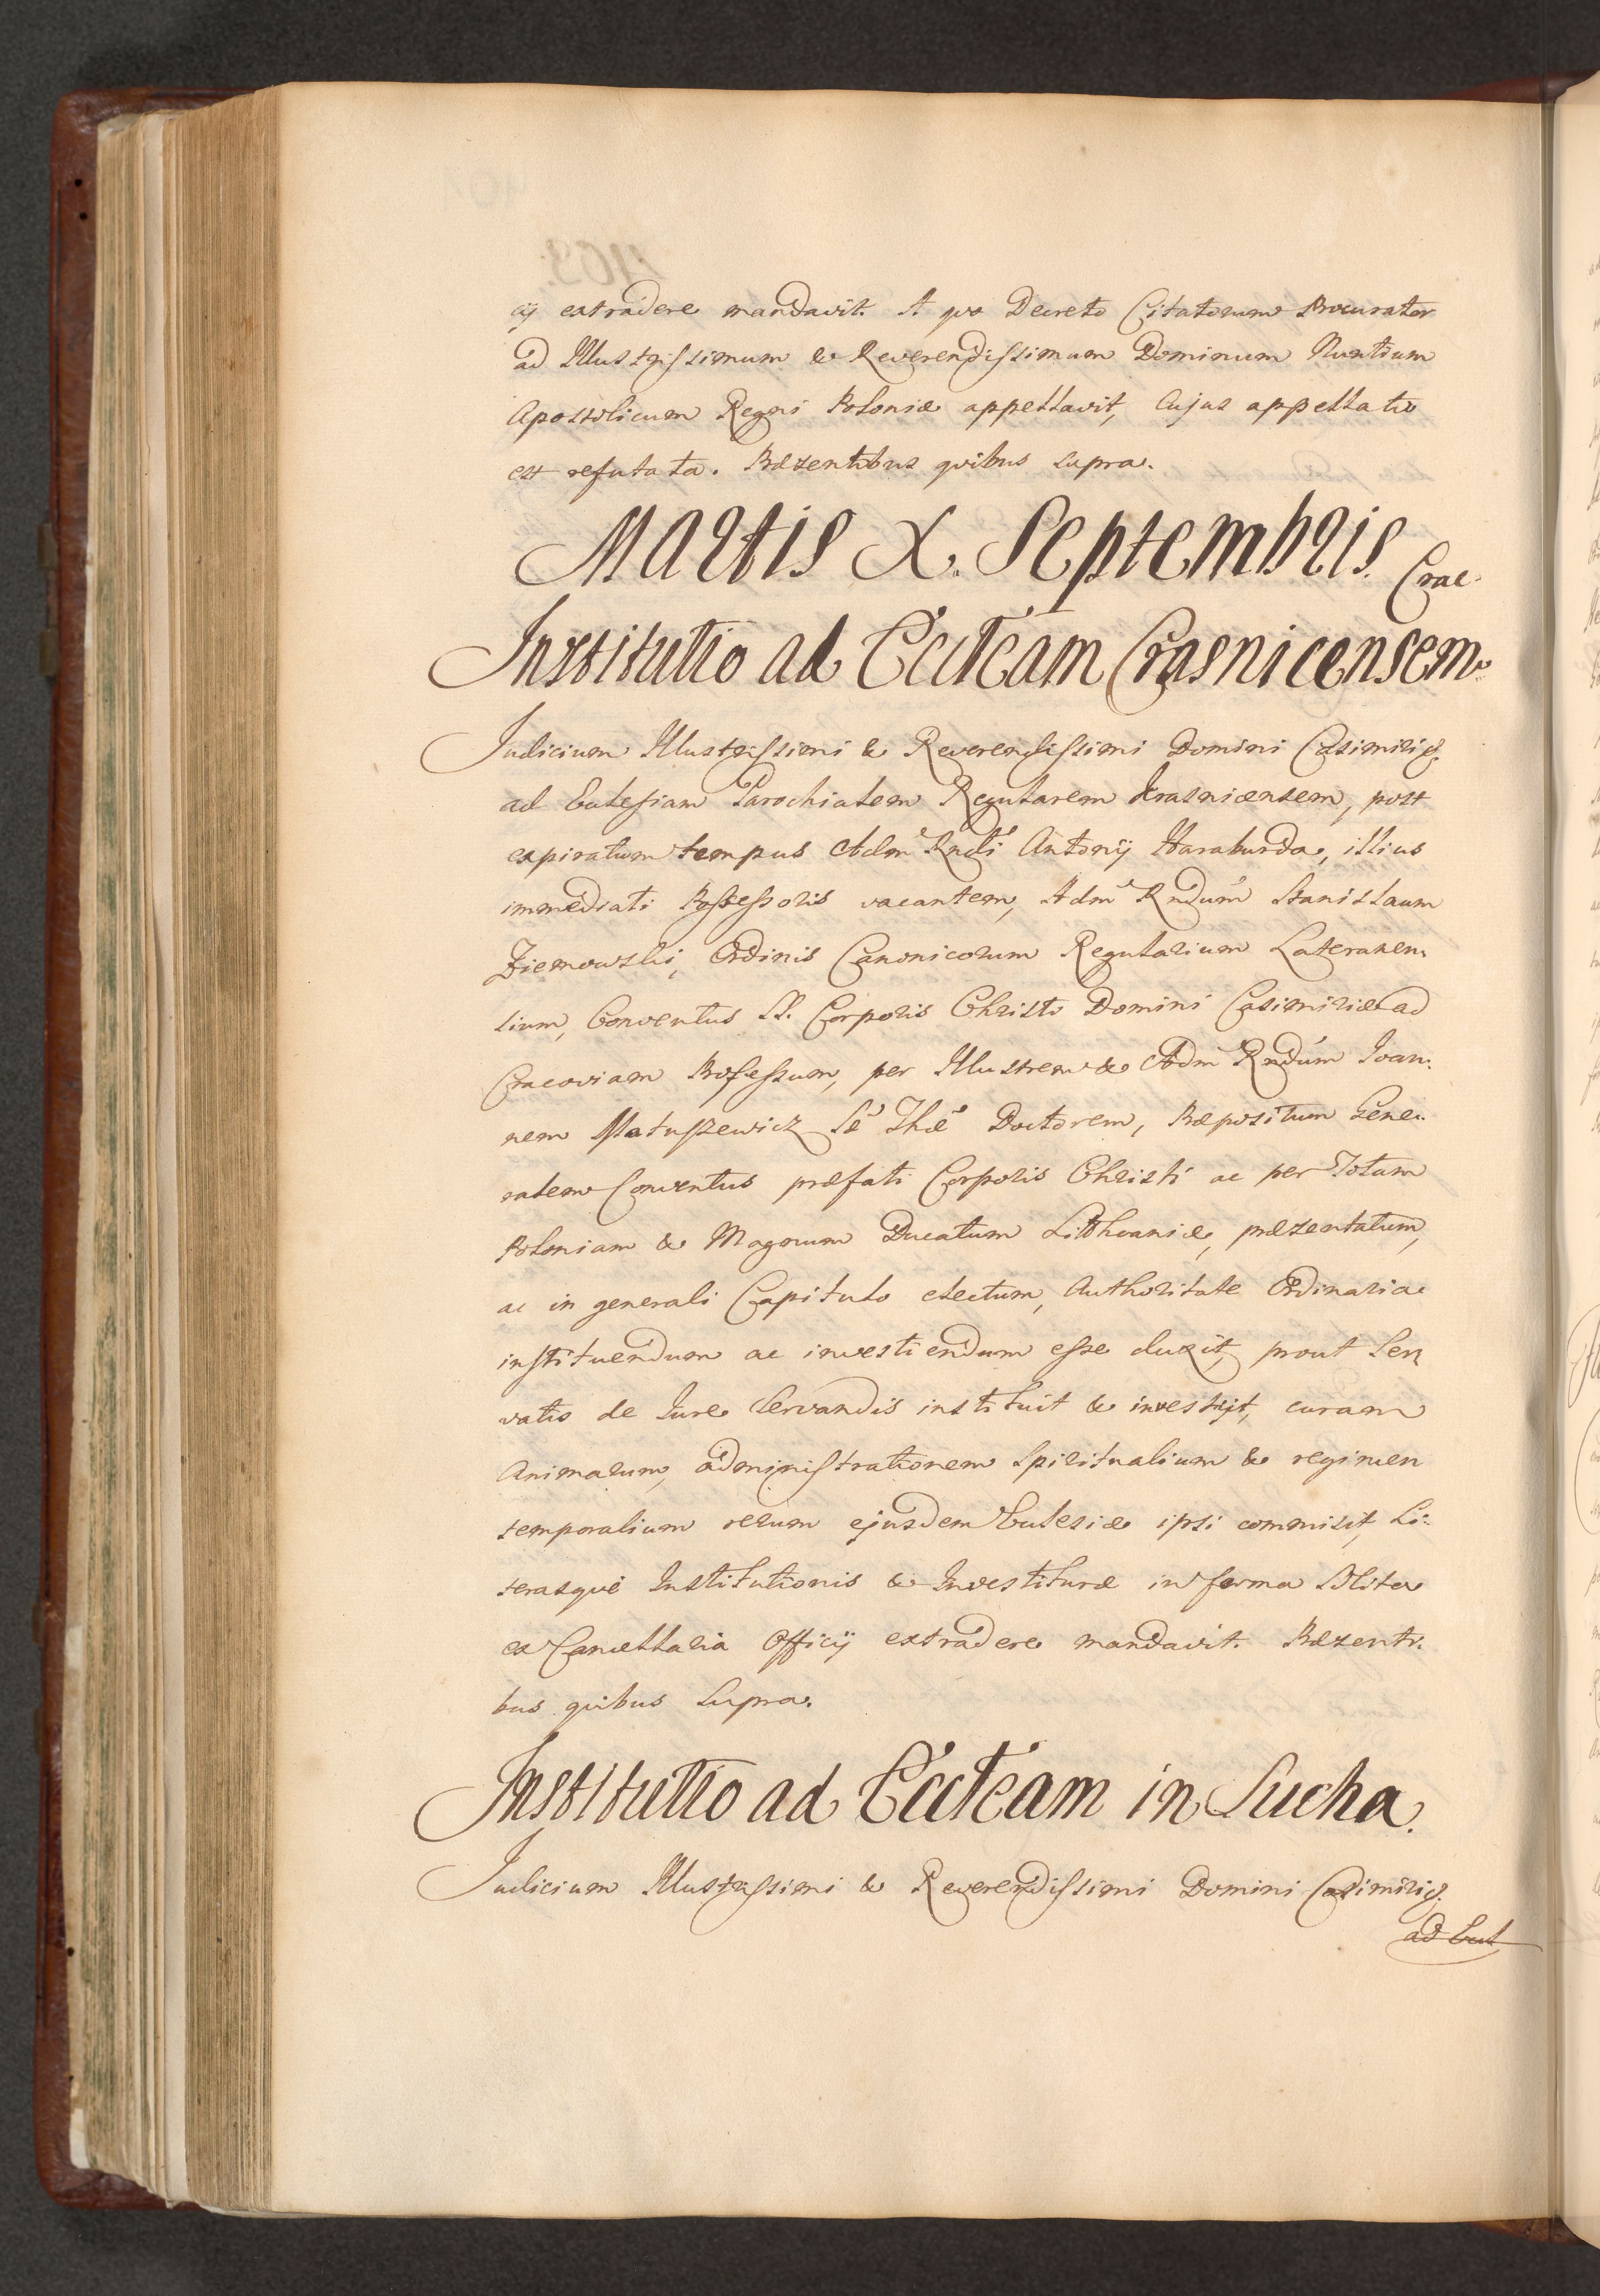 cij extradere mandavit. A quo Decreto Citatorum Procurator
ad Illustrissimum & Reverendissimum Dominum Nuntium
Apostolicum Regni Poloniæ appellavit, Cujus appellatio
est refutata. Præsentibus quibus supra.
Martis X. Septembris. Crac.
Institutio ad Eccleam Crasnicensem.
Judicium Illustrissimi & Reverendissimi Domini Casimiri &.
ad Ecclesiam Parochialem Regularem Krasnicensem, post
expiratum tempus Adm Rndi Antonij Haraburda, illius
immediati Possessoris vacantem, Adm Rndum Stanislaum
Ziemowski, Ordinis Canonicorum Regularium Lateranen
sium, Conventus SS. Corporis Christi Domini Casimiriæ ad
Cracoviam Professum, per Illustrem & Adm Rndum Joan:
nem Matuszewicz Sæ Thæ Doctorem, Præpositum Gene:
ralem Conventus præfati Corporis Christi ac per Totam
Poloniam & Magnum Ducatum Litthvaniæ, præsentatum,
ac in generali Capitulo electum, Authoritate Ordinaria
instituendum ac investiendum esse duxit, prout Ser
vatis de Jure Servandis instituit & investijt, curam
Animarum, administrationem Spiritualium & regimen
temporalium rerum ejusdem Ecclesiæ ipsi commisit, Li:
terasque Institutionis & Investituræ in forma Solita
ex Cancellaria Officij extradere mandavit. Præsenti:
bus quibus Supra.
Institutio ad Eccleam in Sucha.
Judicium Illustrissimi & Reverendissimi Domini Casimiri &.
ad Eccl